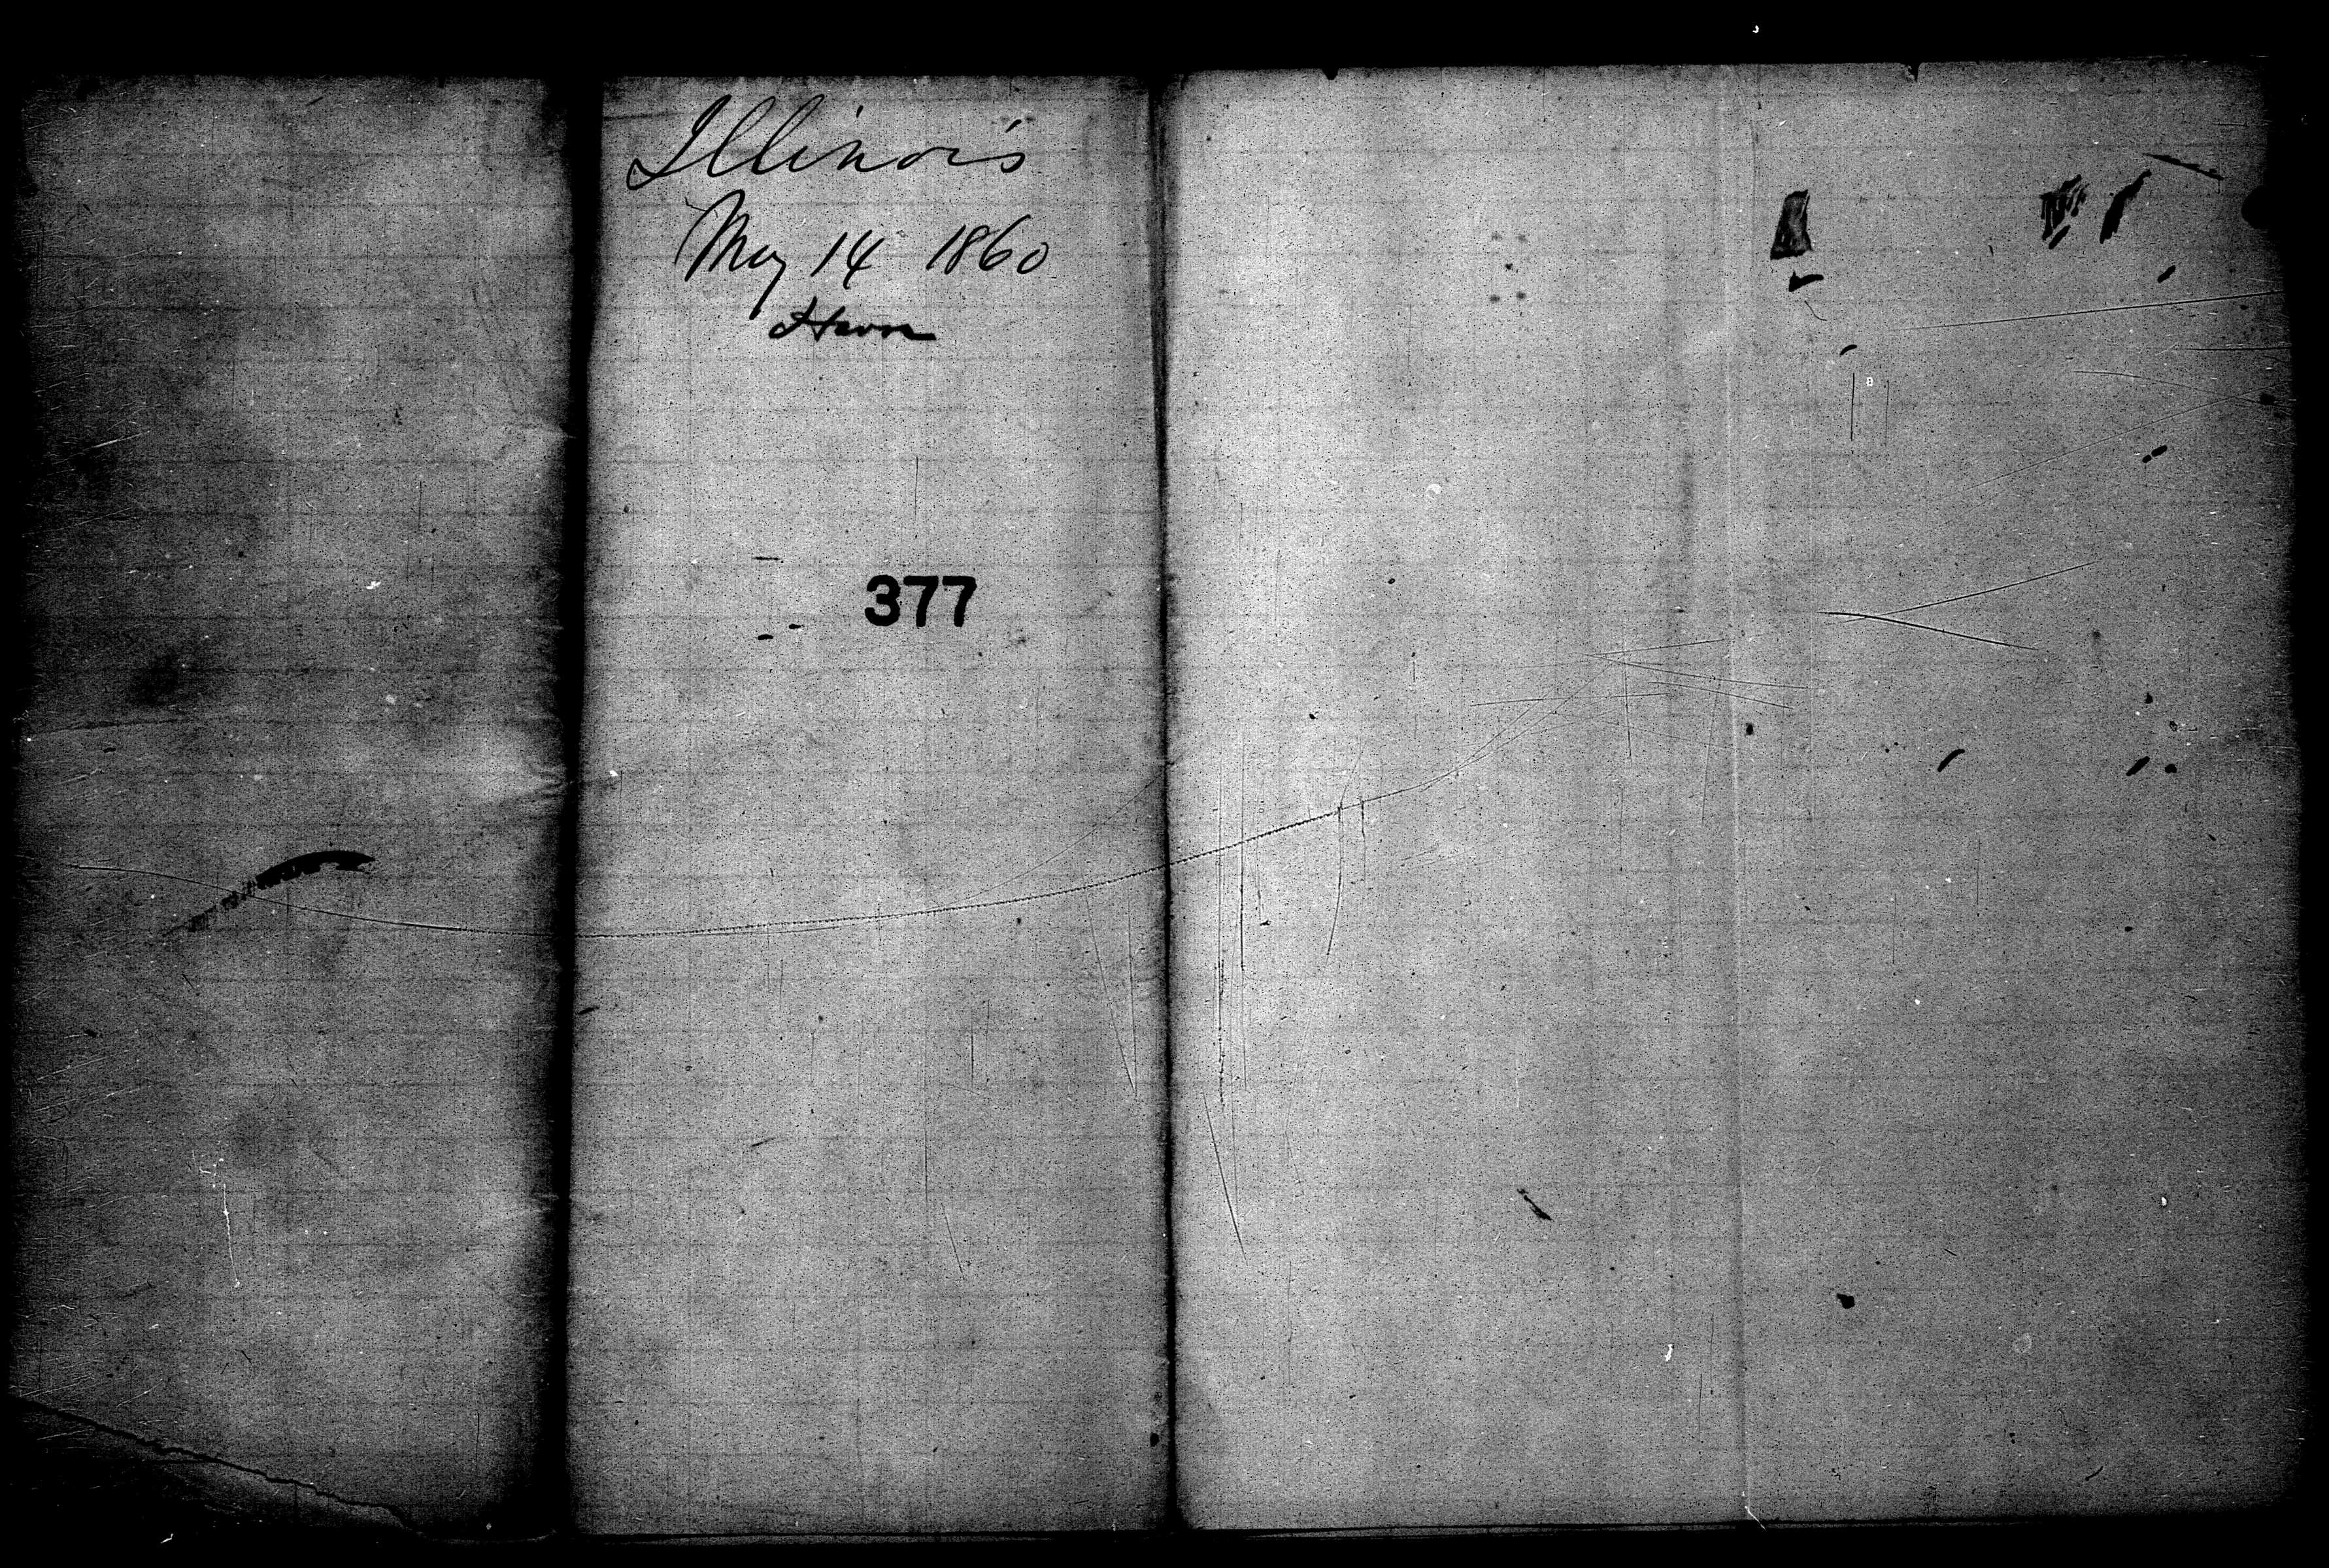 Illinois
May 14 1860
Havre
377